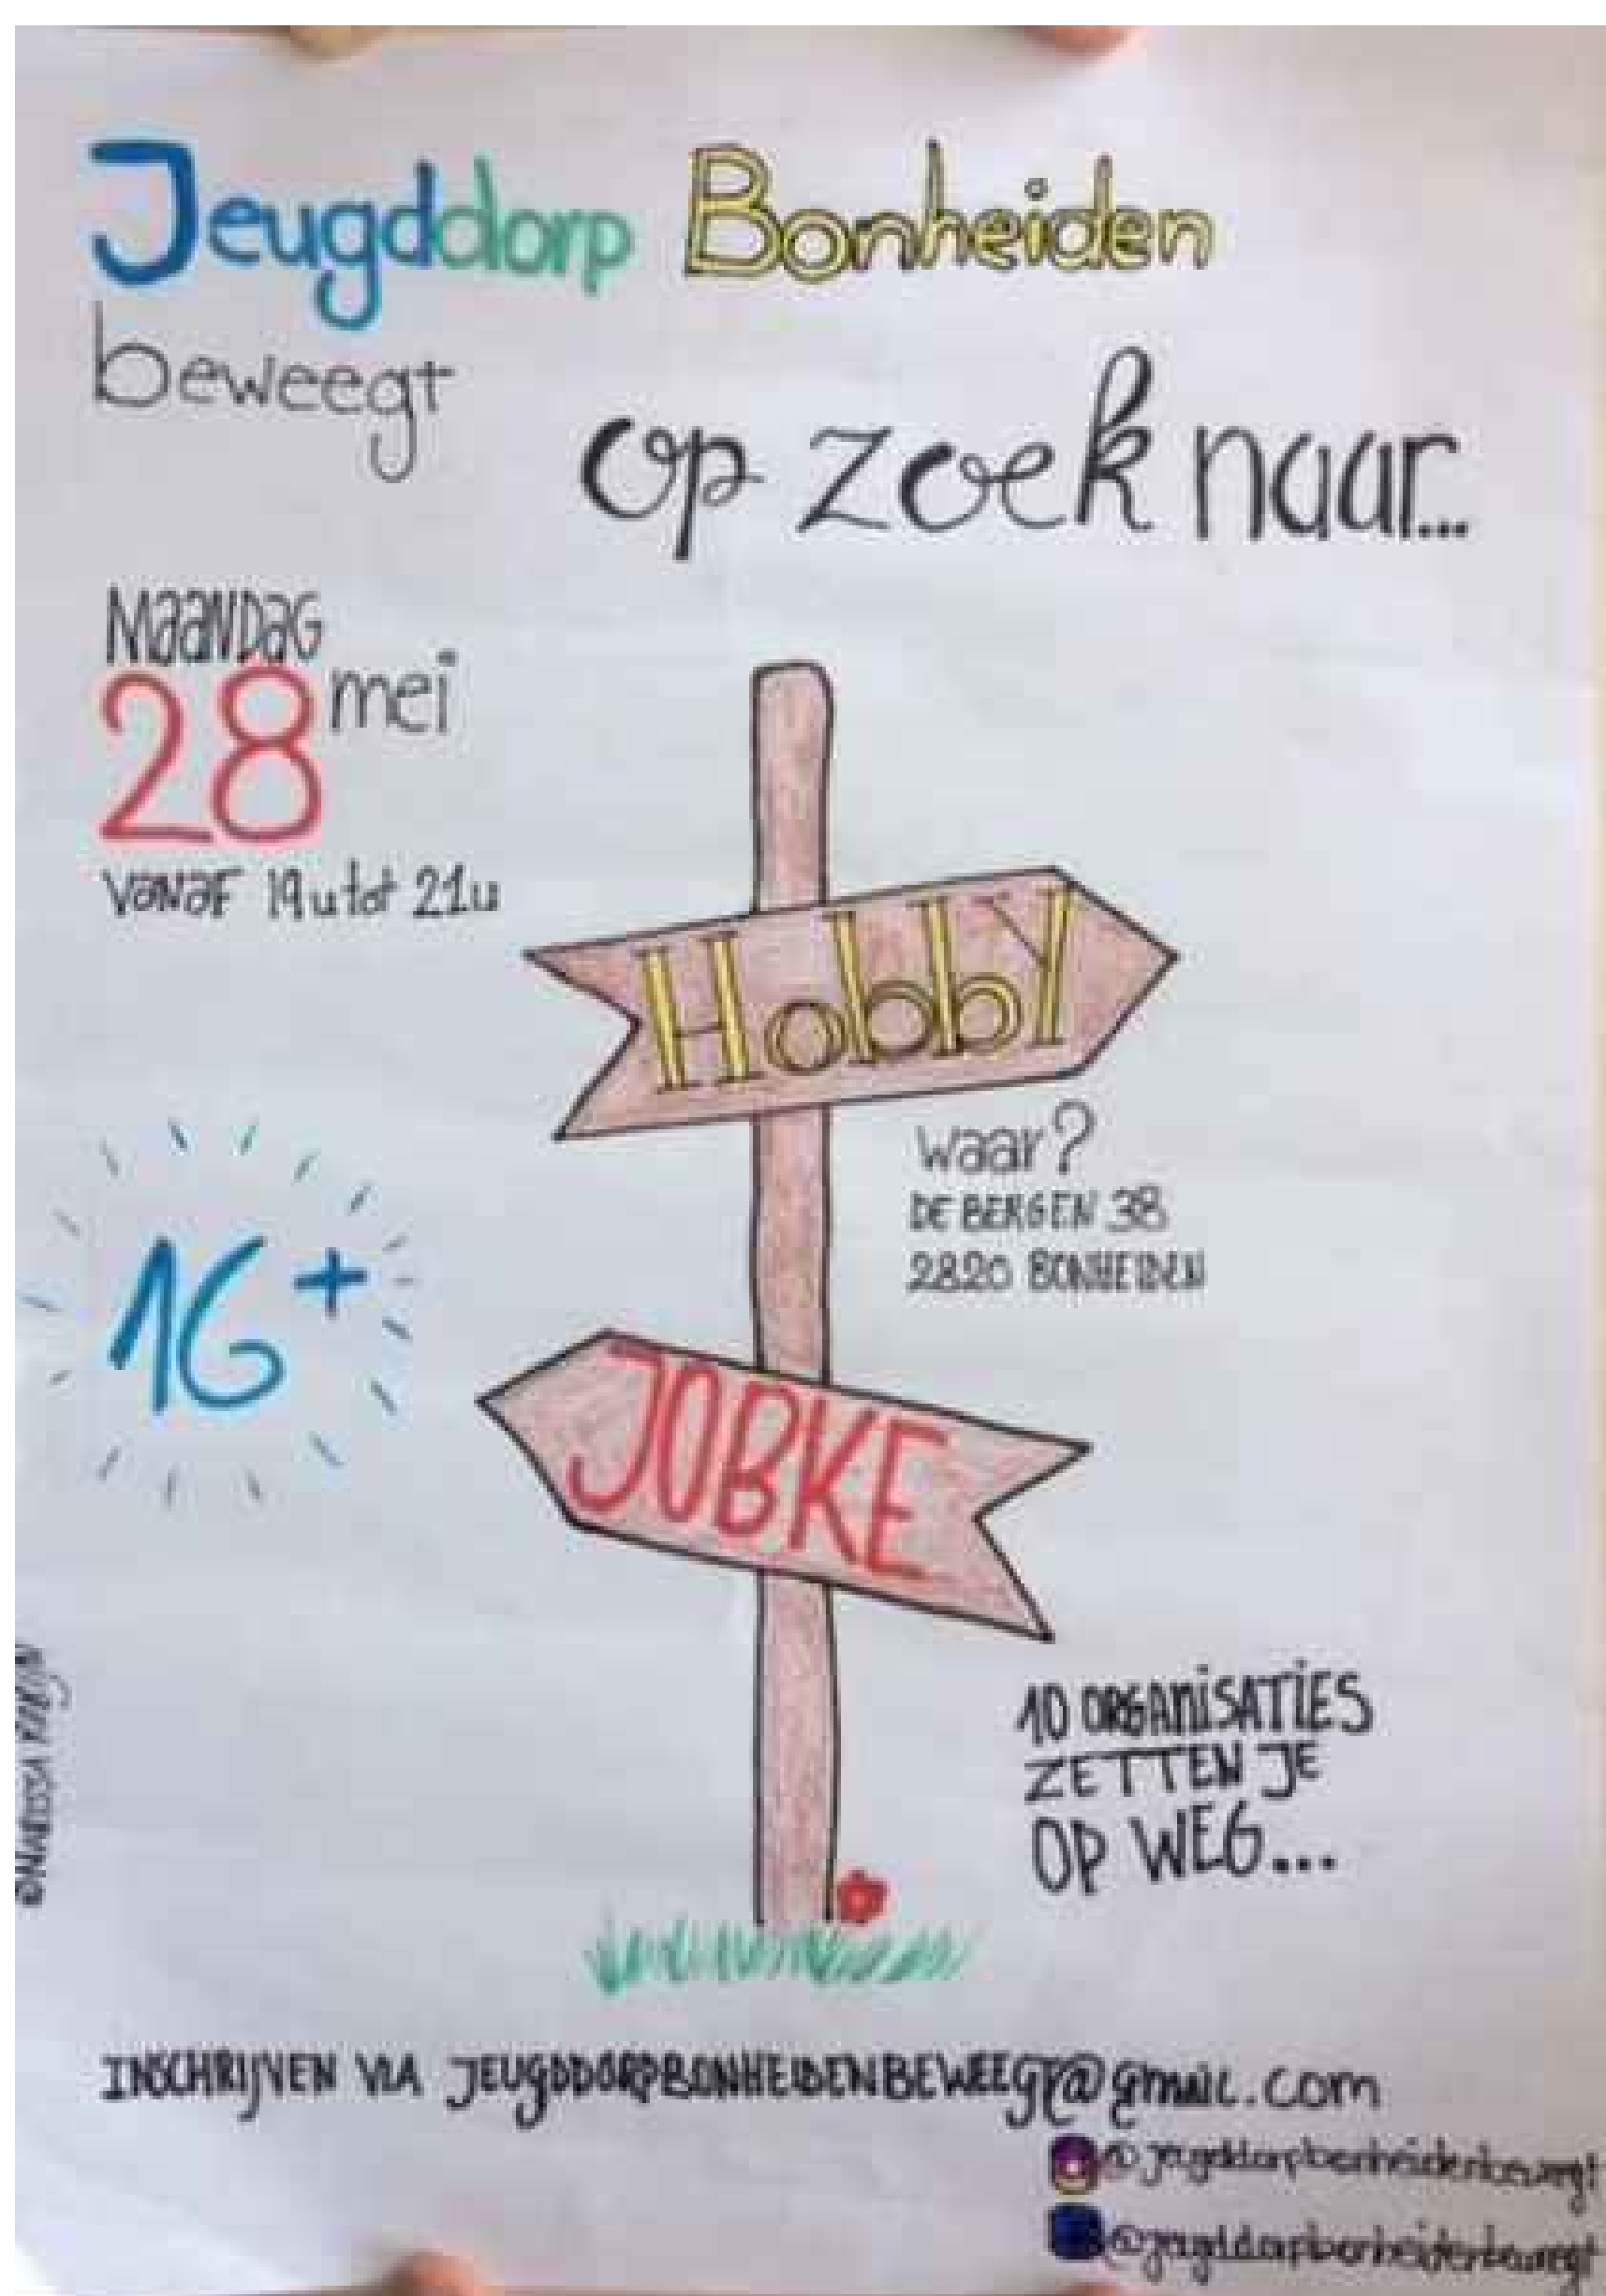 Jeugddorp Bonheiden
beweegt
op zoek naar...
MAANDAG
28 mei
VANAF 19u tot 21u
HobbY
waar?
DE BERGEN 38
2820 BONHEIDEN
16+
JOBKE
10 ORGANISATIES
ZETTEN JE
OP WEG...
INSCHRIJVEN VIA JEUGDDORPBONHEIDENBEWEEGT@gmail.com
@jeugddorpbonheidenbeweegt
@jeugddorpbonheidenbeweegt